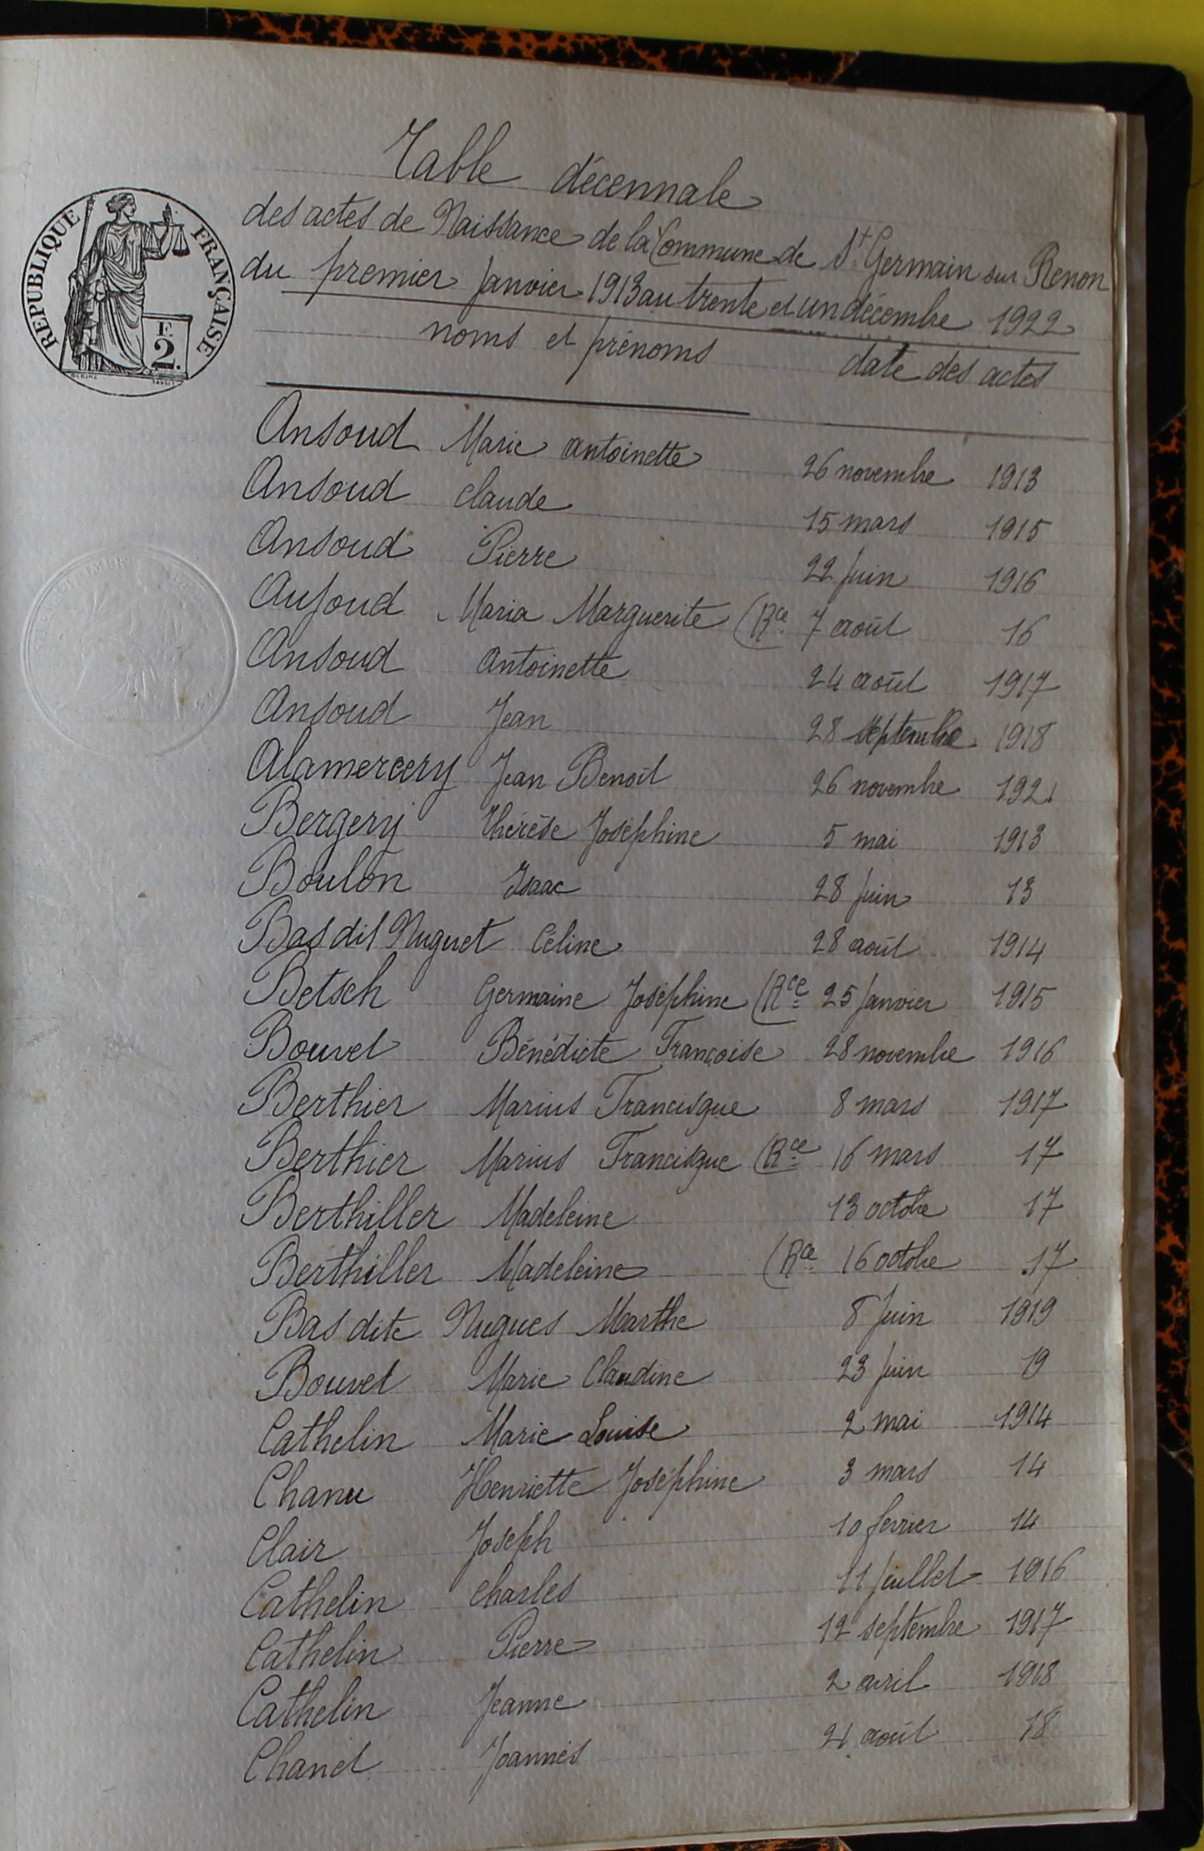 Table décennale
des actes de Naissance de la Commune de St Germain sur Renon
du premier Janvier 1913 au trente et un décembre 1922
noms et prénoms date des actes
REPUBLIQUE FRANÇAISE
2
Ansoud Marie antoinette 26 novembre 1913
Ansoud Claude 15 mars 1915
Ansoud Pierre 22 Juin 1916
Aujoud Maria Marguerite (Rce 7 août 16
Ansoud Antoinette 24 août 1917
Ansoud Jean 28 septembre 1918
Alamercery Jean Benoit 26 novembre 1921
Bergery Thérèse Joséphine 5 mai 1913
Boulon Isaac 28 Juin 13
Bas dit Nuguet Céline 28 août 1914
Betsch Germaine Joséphine (Rce 25 Janvier 1915
Bouvet Bénédicte Françoise 28 novembre 1916
Berthier Marius Francisque 8 mars 1917
Berthier Marius Francisque (Rce 16 mars 17
Berthiller Madeleine 13 octobre 17
Berthiller Madeleine (Rce 16 octobre 17
Bas dite Nugues Marthe 8 Juin 1919
Bouvet Marie Claudine 23 Juin 19
Cathelin Marie Louise 2 mai 1914
Chanu Henriette Joséphine 3 mars 14
Clair Joseph 10 fevrier 14
Cathelin Charles 11 Juillet 1916
Cathelin Pierre 12 septembre 1917
Cathelin Jeanne 2 avril 1918
Chanel Joannès 21 août 18